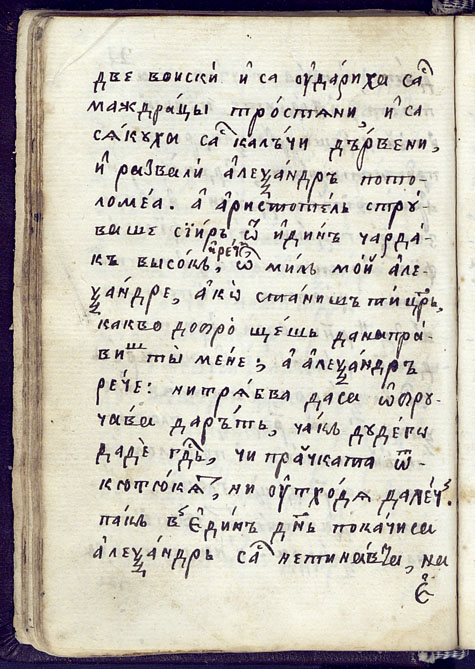 две воискѝ и҆ са оу҆да́риха са҆с̾
маждра́цы тро́стѧни и҆ са
сѧ́куха са҆с̾ калъ́чи дъ́рвени,
и҆ развали а҆леѯа́ндръ пото-
ломе́а. а҆ а҆ристоте́ль стрꙋ́-
ваше сїи́ръ ѿ и҆ди́нъ чарда́-
къ высо́къ, и҆ рече́, ѽ ми́лъ мо́й а҆ле-
ѯа́ндре, а҆кѡ̀ ста́нишъ ти цр҃ь,
какво̀ добро̀ ще́шь данапра́-
виш ты̀ ме́не; а҆ а҆леѯа́ндръ
рече: нитрѧ́бва даса ѡ҆брꙋ-
ча́ва да́рътъ, ча́къ дꙋде́гѡ
дадѐ гд҃ь, чи пра́чката ѿ-
кютю́кѧ, ни оу҆тхо́дѧ дале́ч.
па́къ в̾ є҆ди́нъ дн҃ь пока́чиса
а҆леѯа́ндръ са҆с̾ нетина́вца, на
є҆